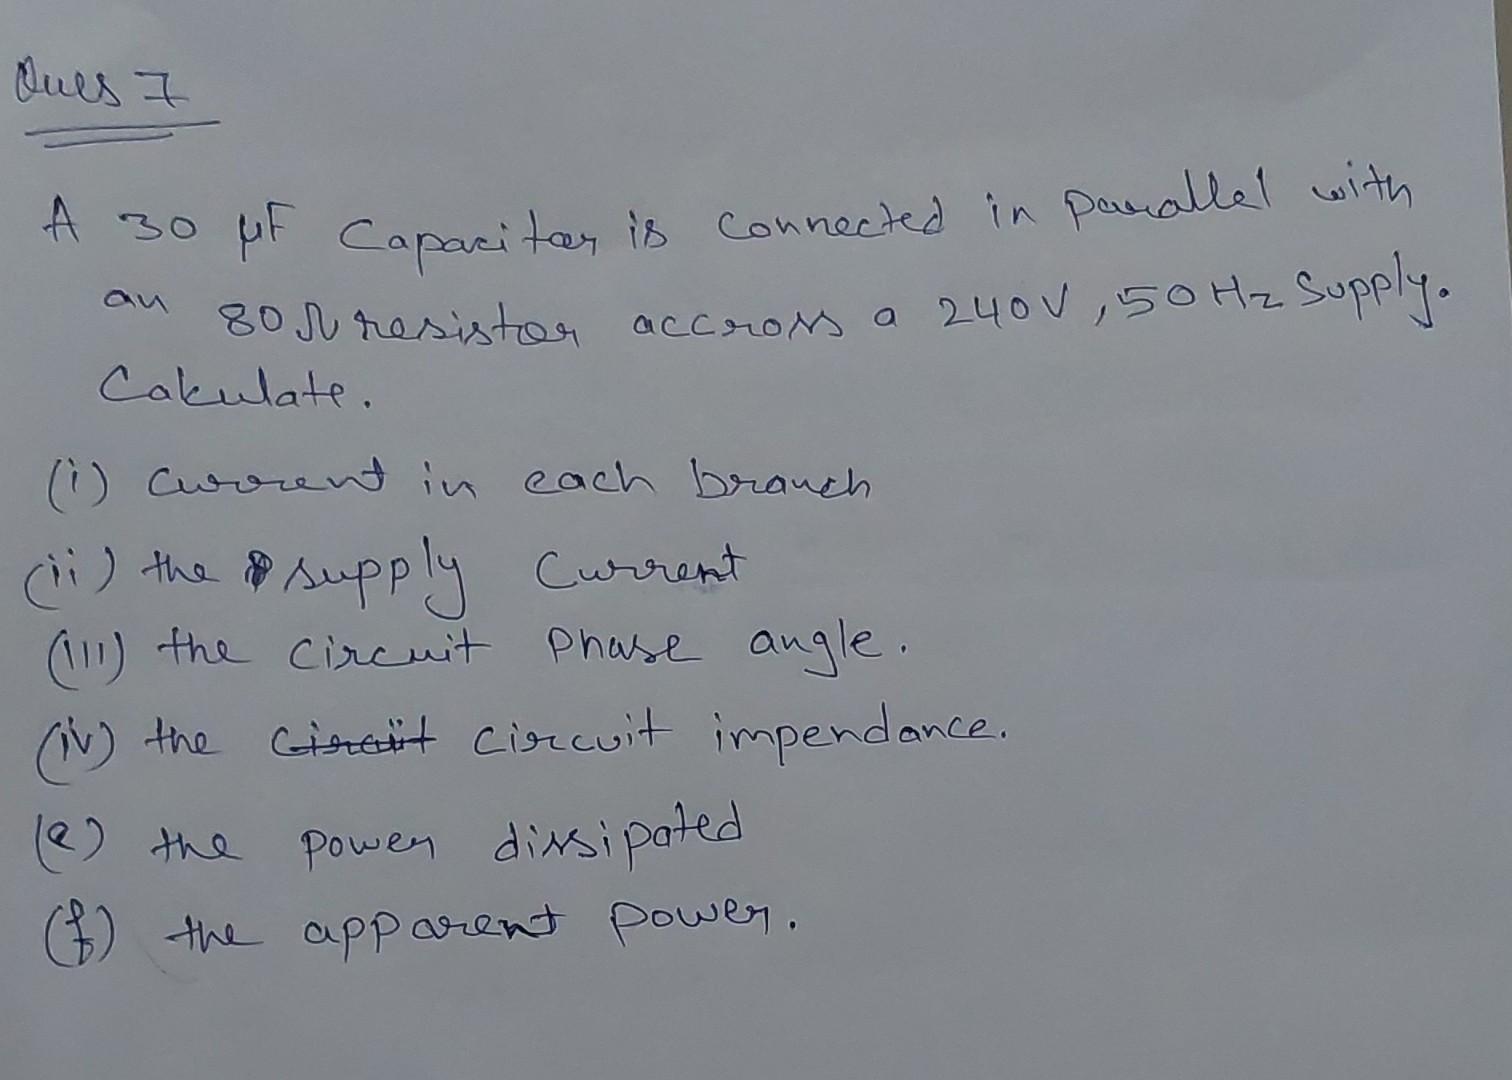 Ques 7
A 30 μF Capacitor is connected in parallel with
an 80Ω resistor accross a 240V, 50Hz Supply.
Calculate.
(i) current in each branch
(ii) the supply current
(iii) the circuit phase angle.
(iv) the circuit circuit impendance.
(e) the power dissipated
(f) the apparent power.